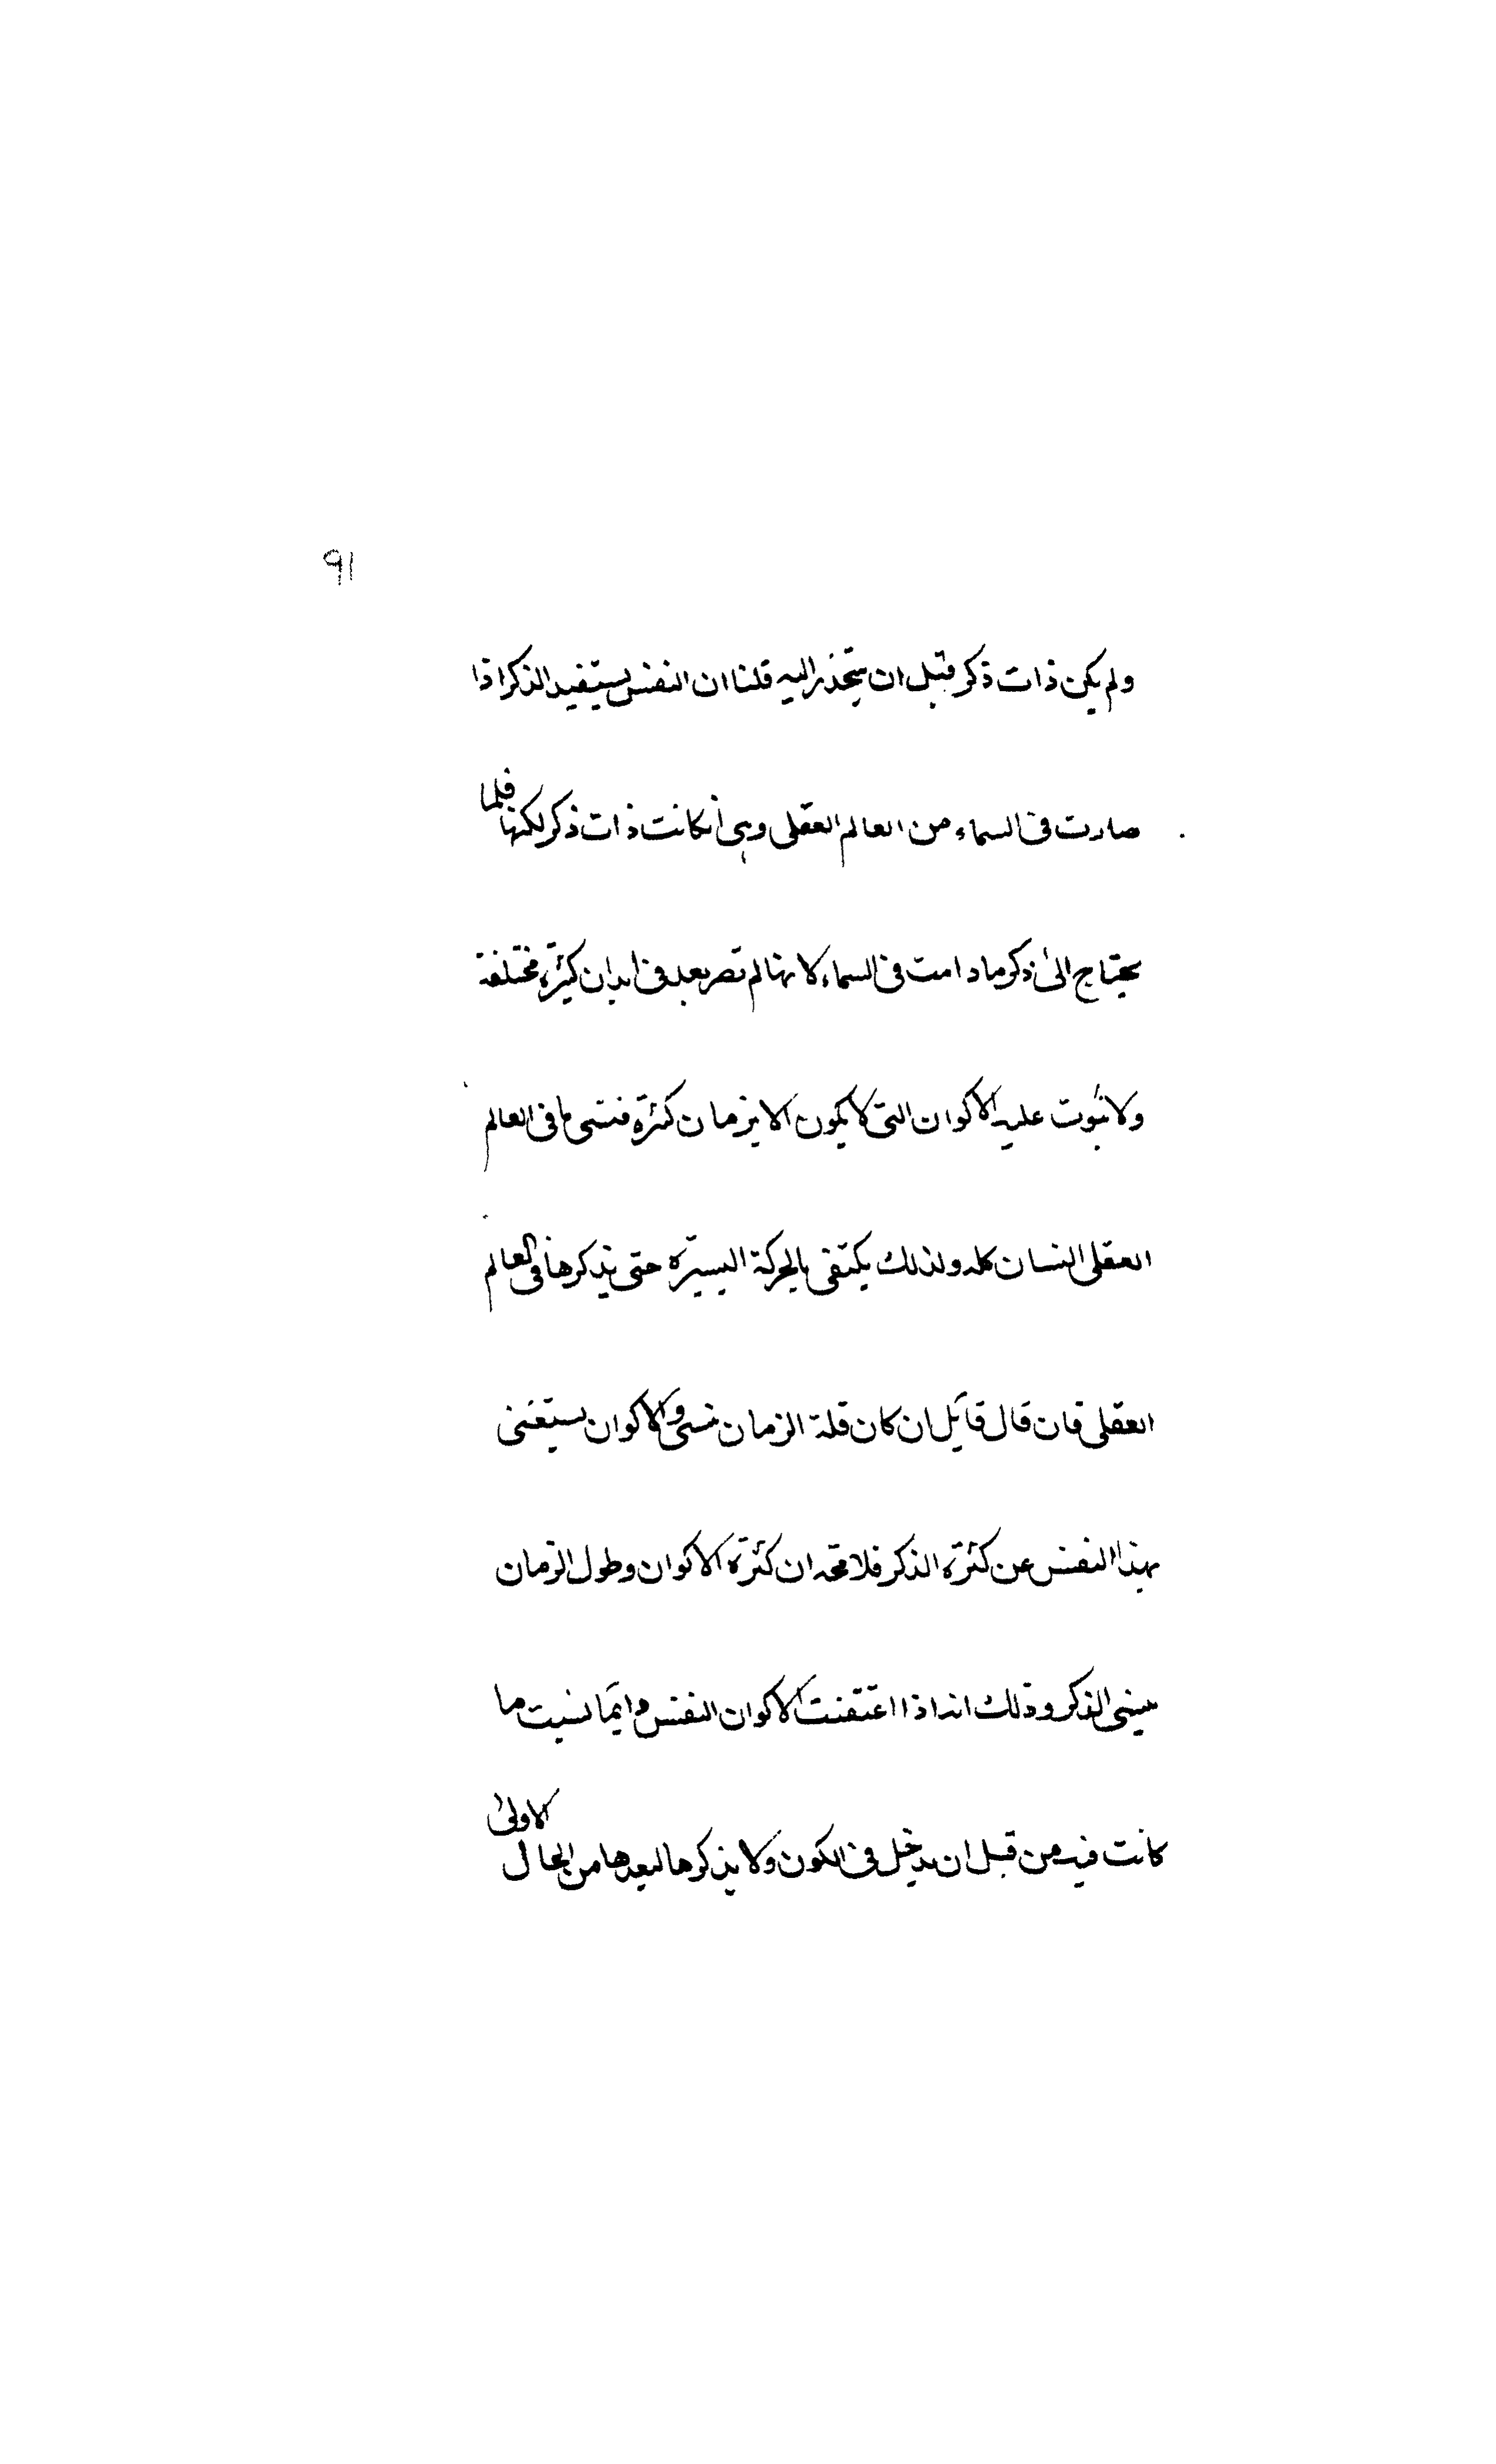 ٩١
ولم يكن ذات ذكر قبل ان يتحذر اليه قلنا ان النفس يستفيد الذكر اذا
صارت فى السماء من العالم العقلى وهى ان كانت ذات ذكر لكنها فلما
يحتاج الى ذكر ما دامت فى السماء لانها لم تصر بعد فى ابدان كثيرة مختلفة
ولا عليه الاكوان التى لا يكون الا بزمان كثرة فنسى ما فى العالم
العقلى النسان كله ولذلك يكتفى بالحركة اليسيرة حتى يذكرها فى العالم
العقلى فان قال قايل ان كان قلة الزمان نسى والاكوان يستغنى
بهذا النفس عن كثرة الذكر فلا محه ان كثرة الاكوان وطول الزمان
سينسى الذكر وذلك انه اذا اعتقنت الاكوان النفس دايما نسيت ما
كانت فيه من قبل ان يدخل فى الكون ولا يذكرها لبعدها من الحال الاولى